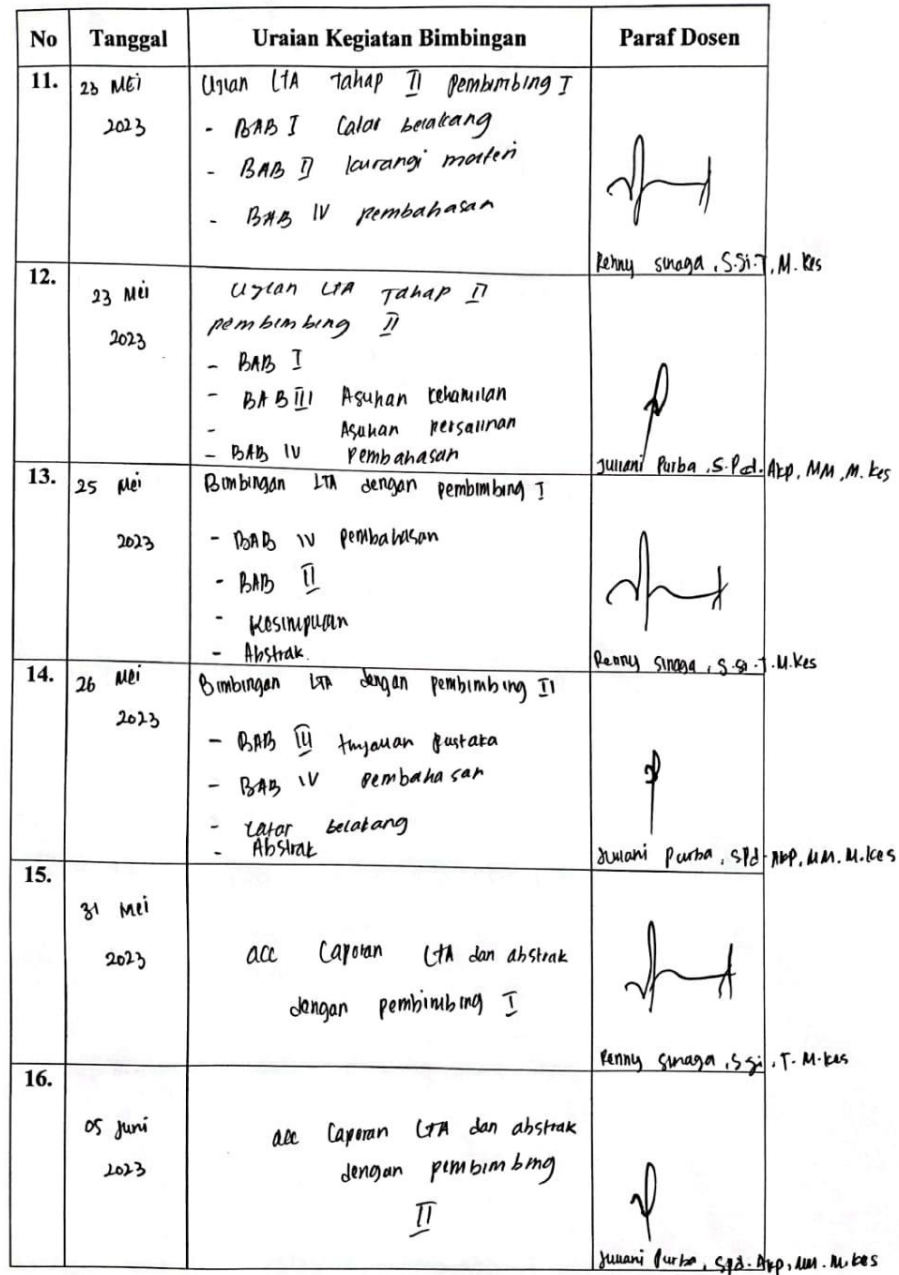 No Tanggal Uraian Kegiatan Bimbingan Paraf Dosen
11. 23 MEI 2023
Ujian LTA Tahap II pembimbing I
- BAB I Latar belakang
- BAB II kurangi materi
- BAB IV pembahasan
Renny Sinaga, S.Si.T, M.Kes
12. 23 Mei 2023
Ujian LTA Tahap II
pembimbing II
- BAB I
- BAB III Asuhan kehamilan
- Asuhan persalinan
- BAB IV Pembahasan
Juliani Purba, S.Pd. Akp, MM, M.kes
13. 25 Mei 2023
Bimbingan LTA dengan pembimbing I
- BAB IV pembahasan
- BAB II
- Kesimpulan
- Abstrak.
Renny Sinaga, S.Si.T. M.Kes
14. 26 Mei 2023
Bimbingan LTA dengan pembimbing II
- BAB III tinjauan pustaka
- BAB IV pembahasan
- Latar belakang
- Abstrak
Juliani Purba, SPd-Akp, MM. M.kes
15. 31 Mei 2023
acc Laporan LTA dan abstrak
dengan pembimbing I
Renny Sinaga, Ssi, T. M.kes
16. 05 Juni 2023
acc Laporan LTA dan abstrak
dengan pembimbing
II
Juliani Purba, Spd. Akp, MM. M.kes